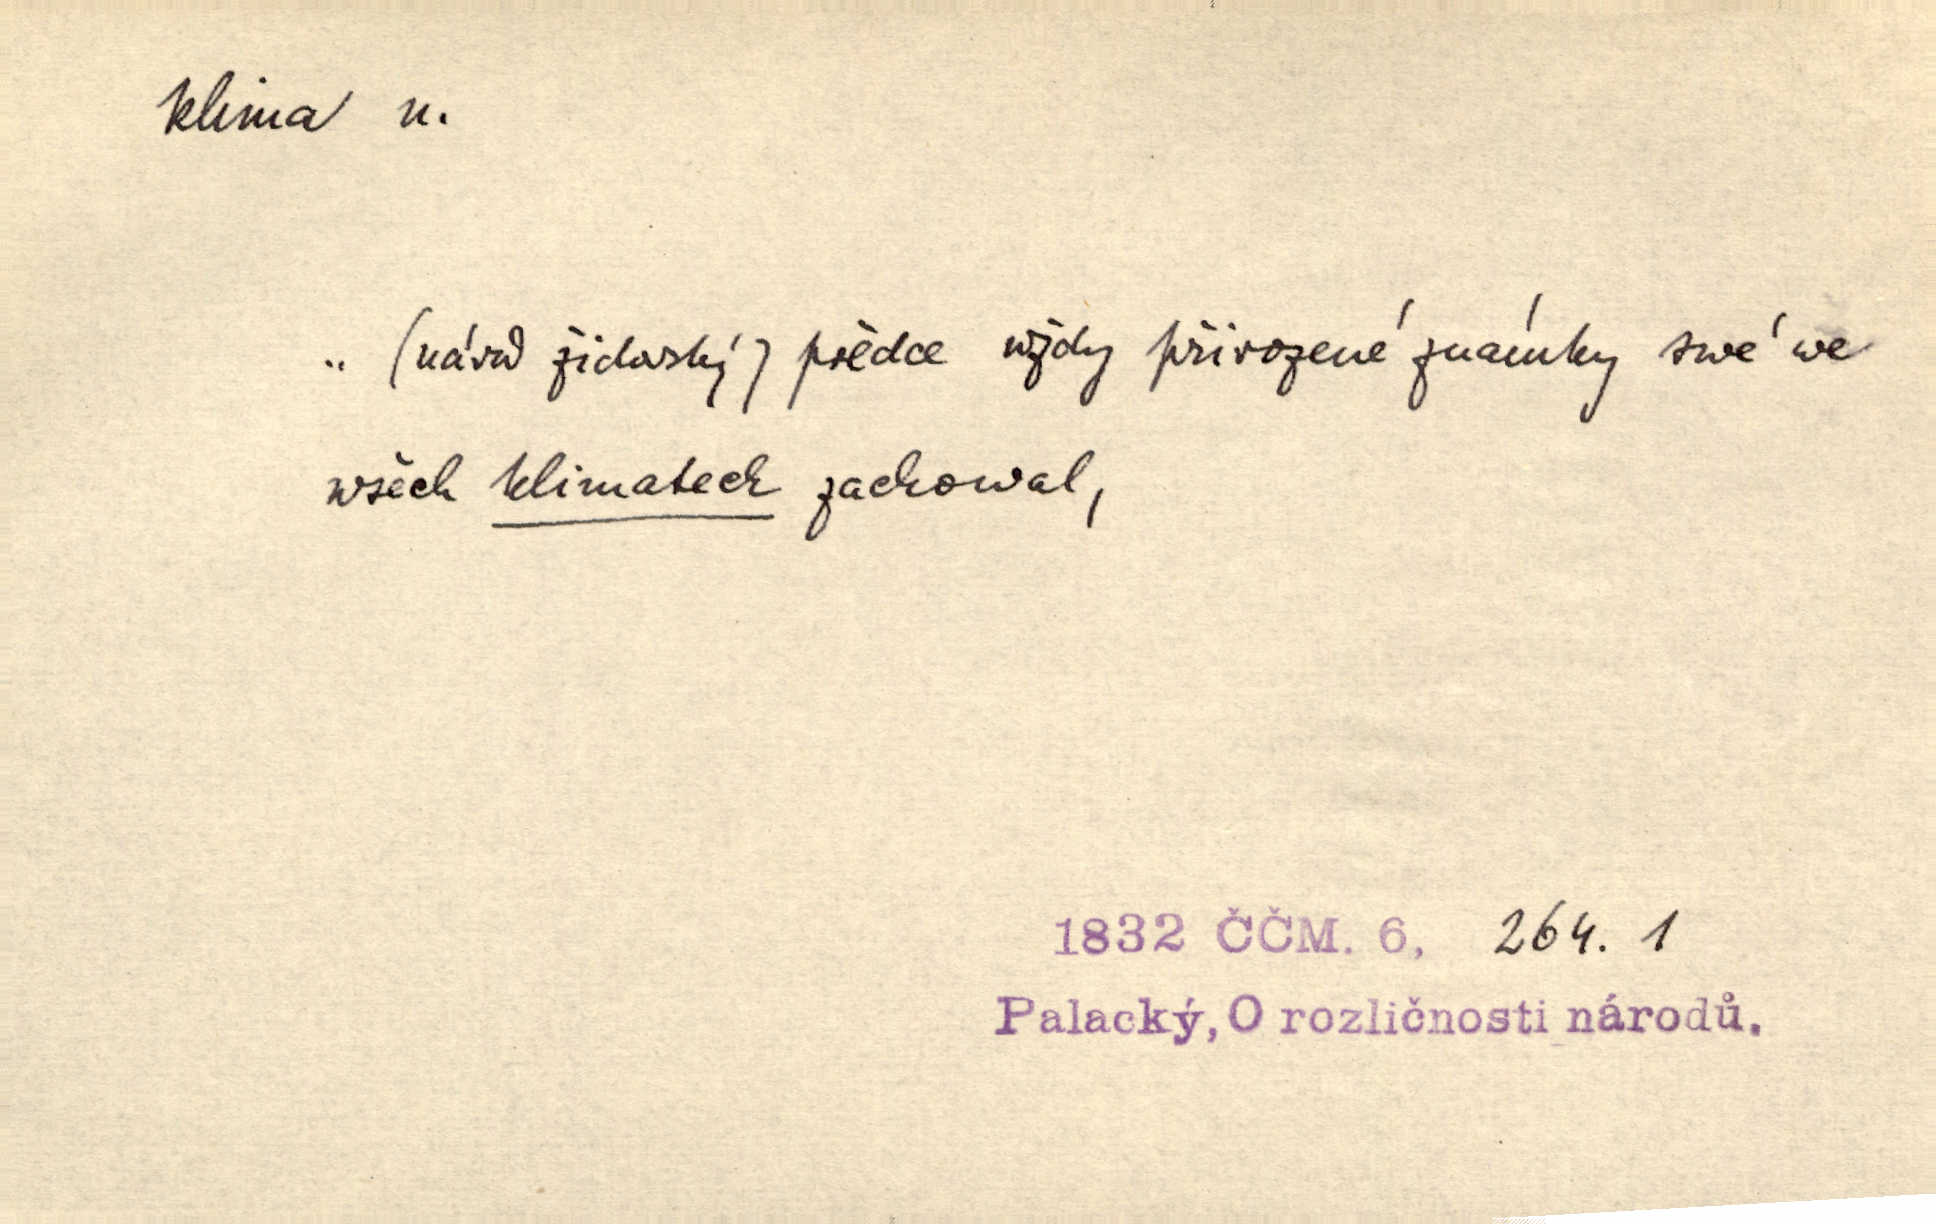 klima n.
.. (národ židovský) předce wždy přirozené známky swé we
wšech klimatech zachowal,
1832 ČČM. 6, 264. 1
Palacký, O rozličnosti národů.